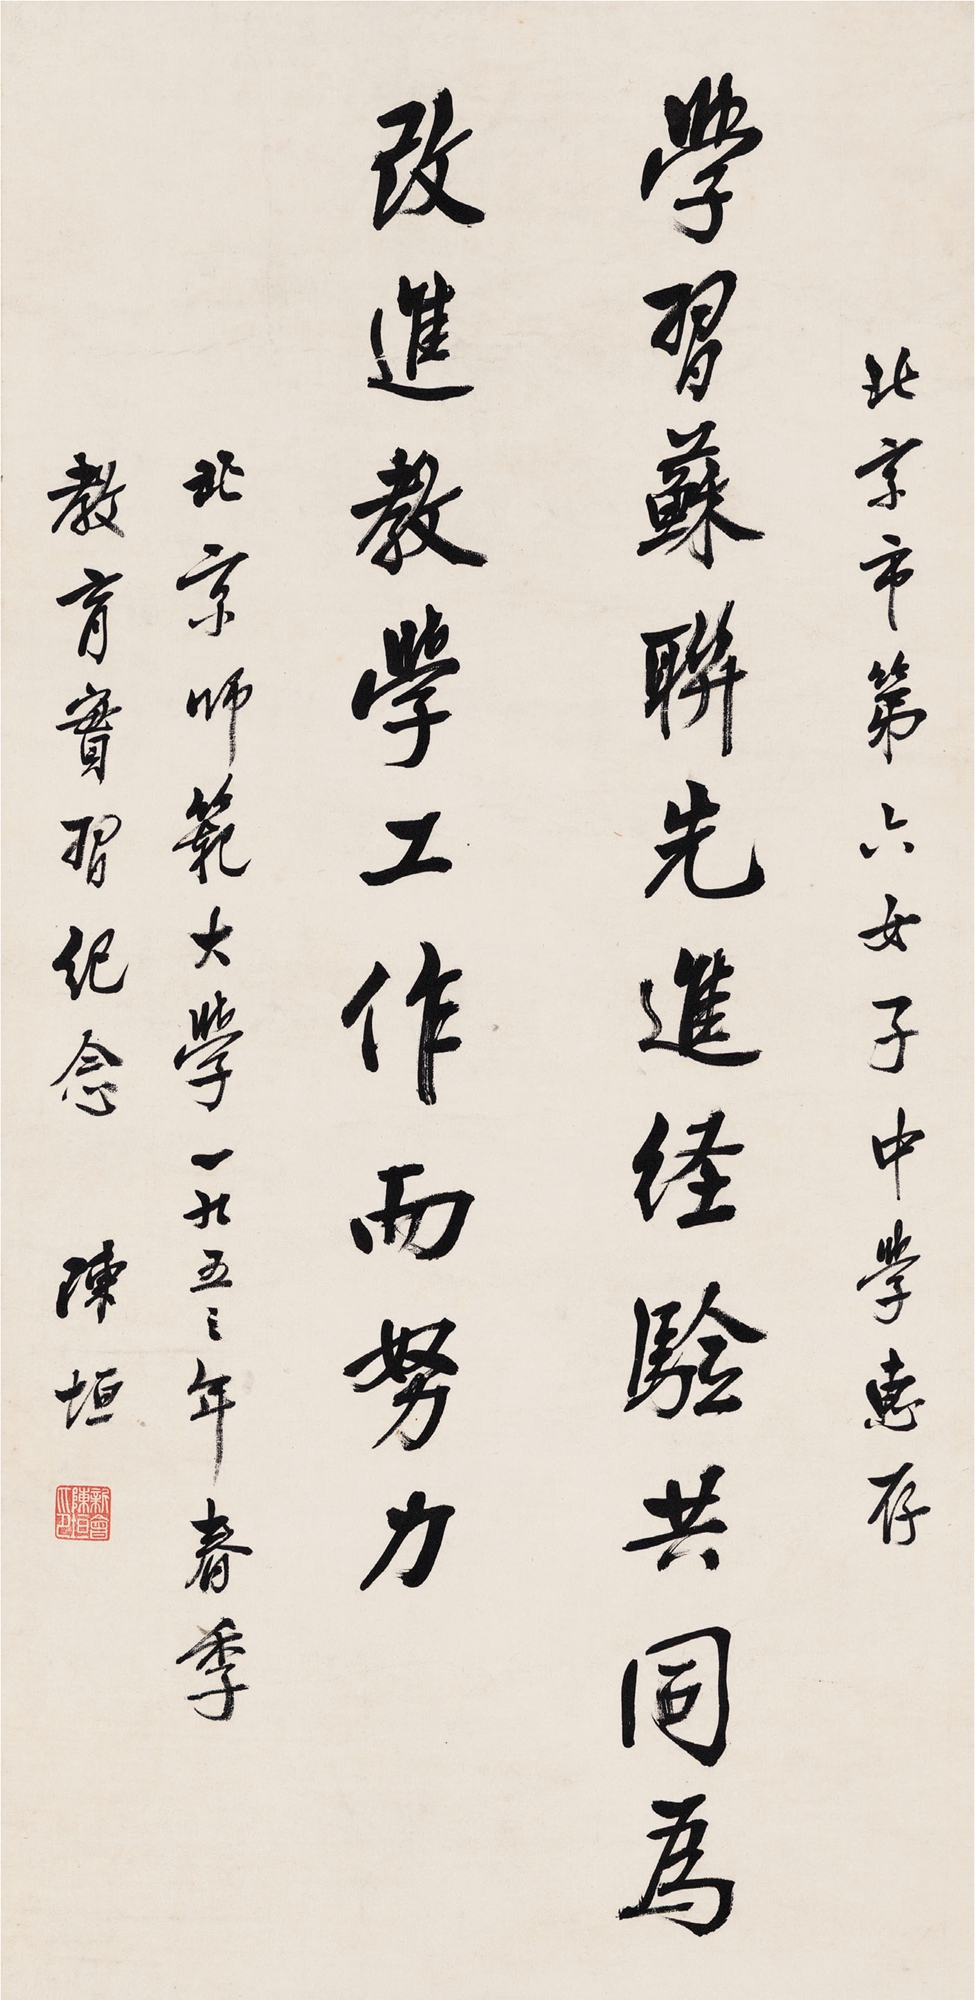 北京市第六女子中學惠存
學習蘇聯先進経驗共同為
改進教學工作而努力
北京師範大學一九五三年春季
教育實習紀念 陳垣
新會陳垣